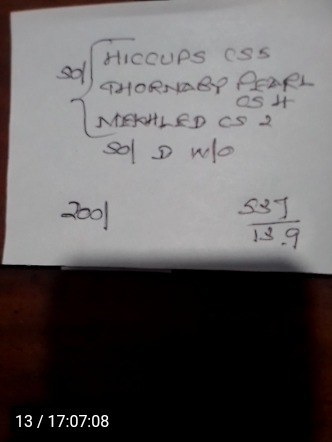 50/ HICCUPS CS5
THORNABY PEARL
CS 4
MEKHLED CS 2
50/ D W/O
200/
537
13.9
13 / 17:07:08